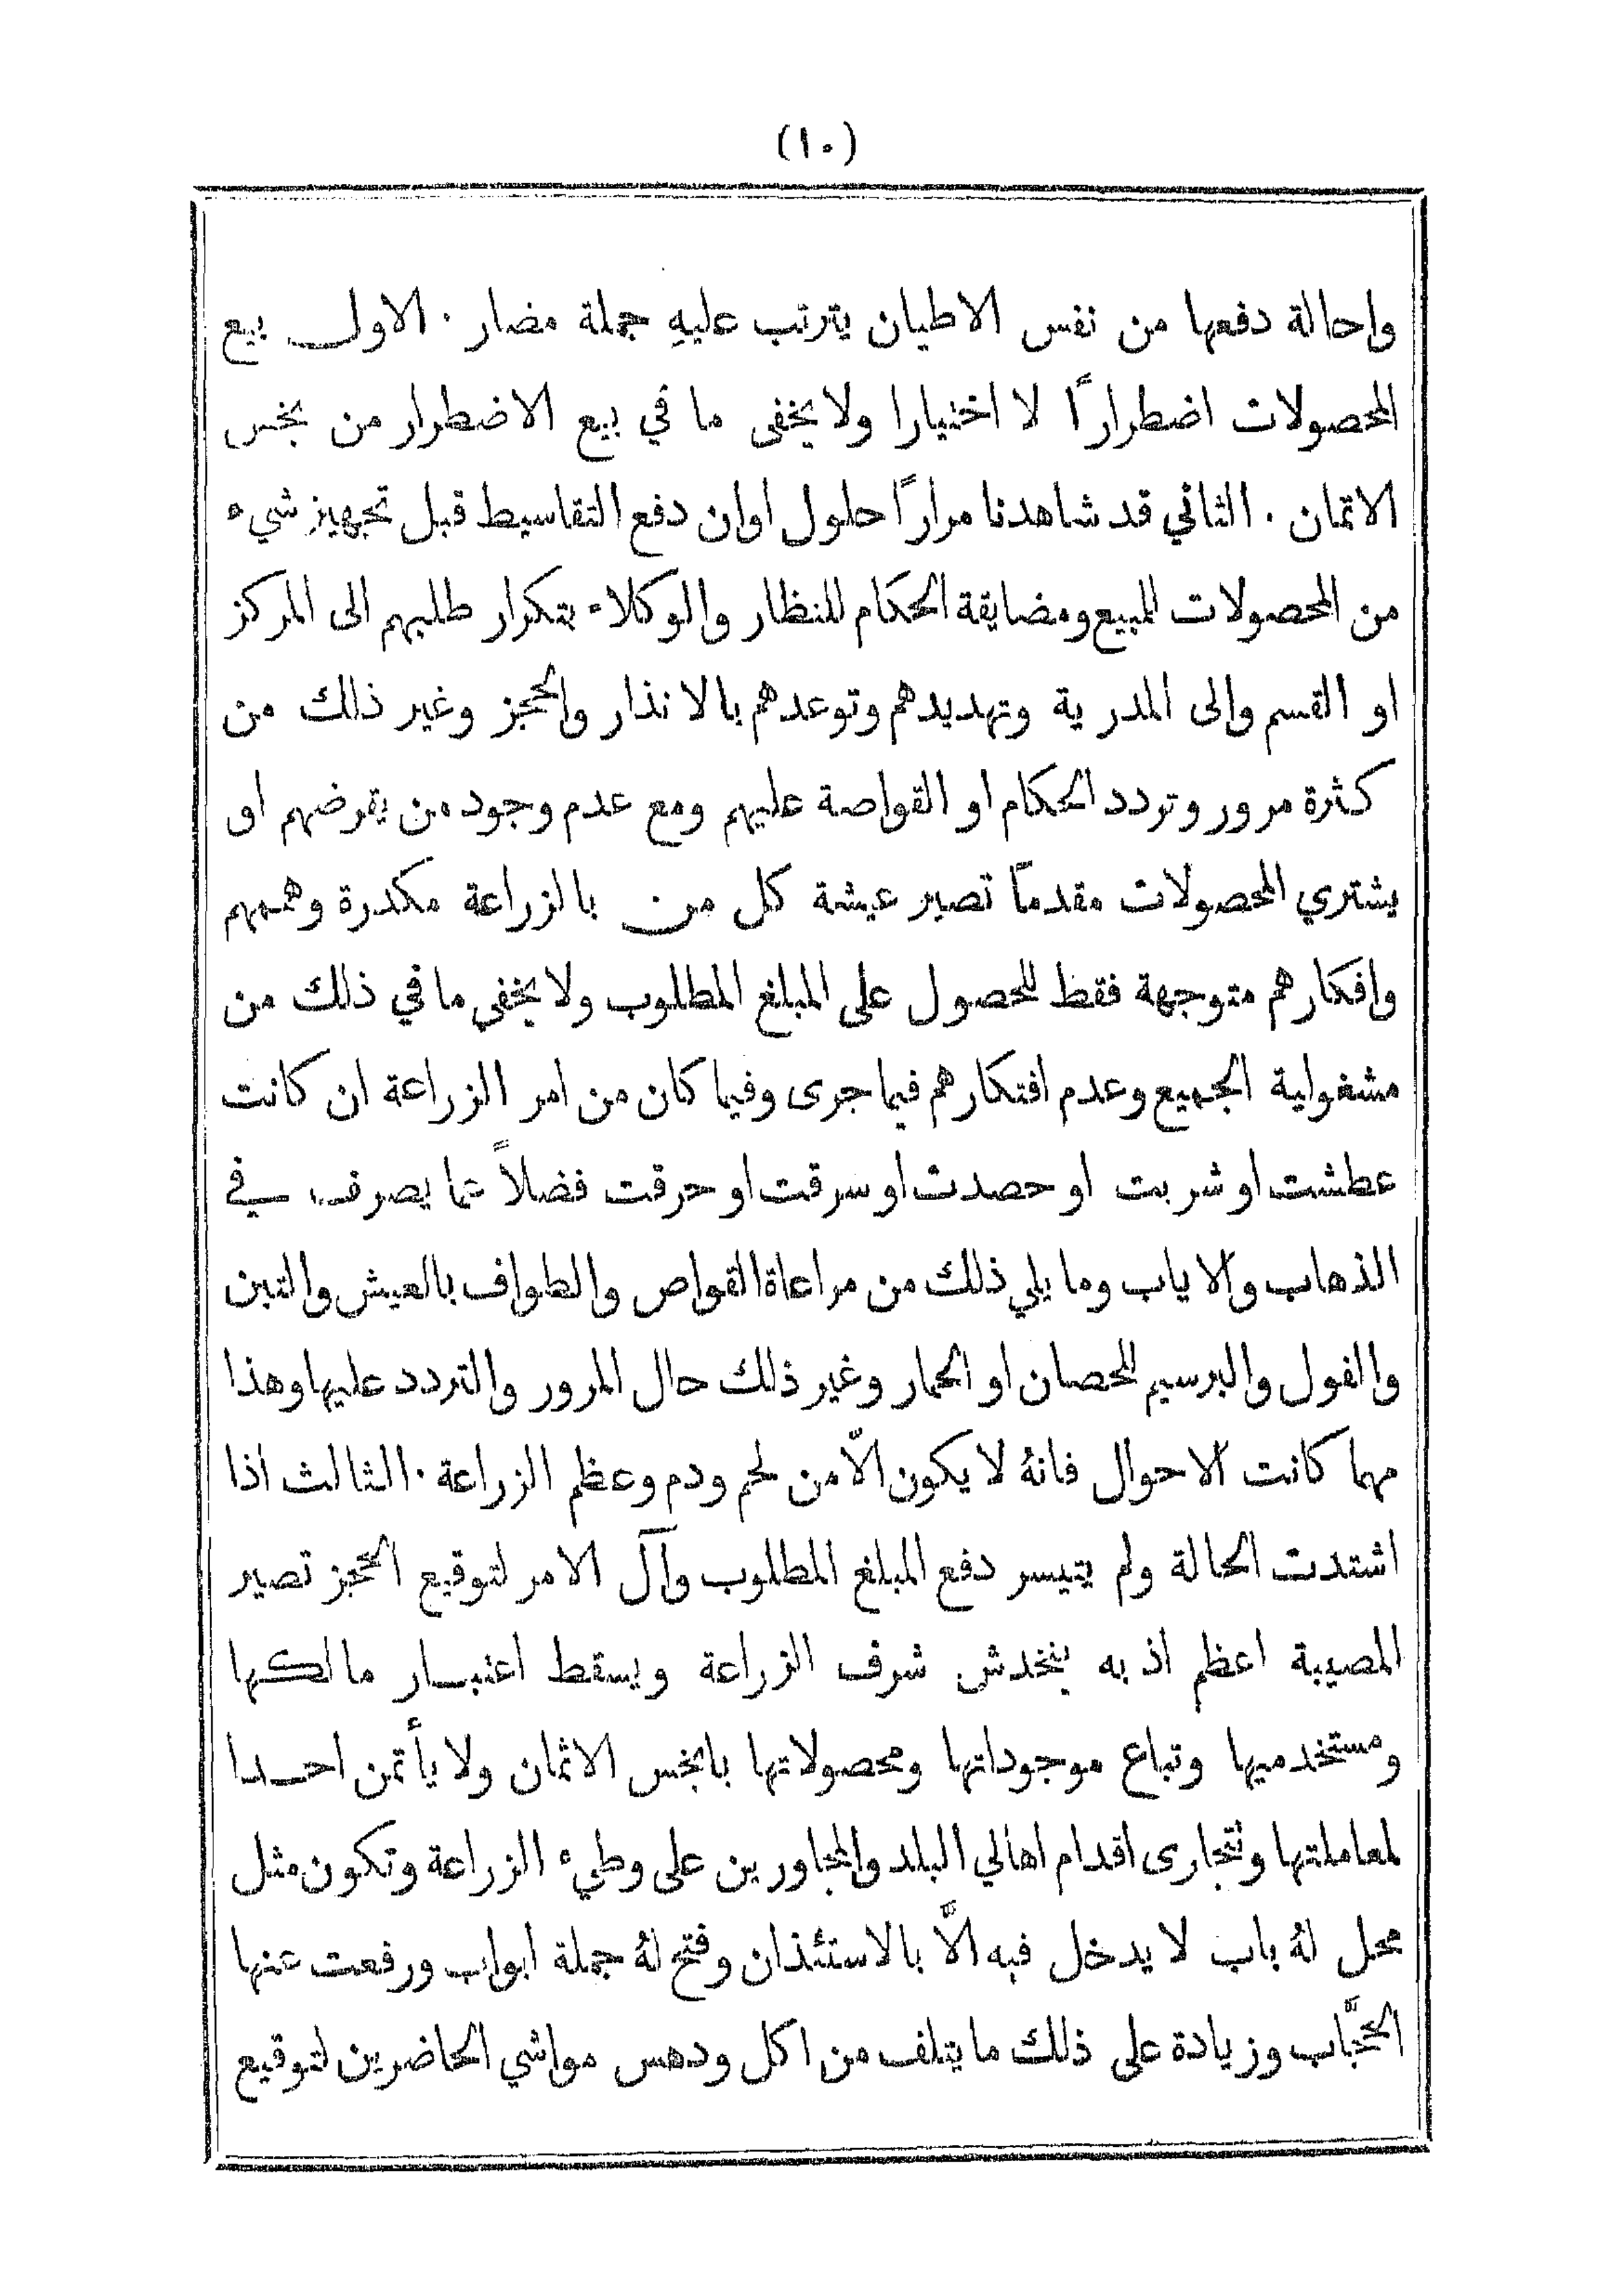 (١٠)
واحالة دفعها من نفس الاطيان يترتب عليهِ جملة مضار . الاول بيع
المحصولات اضطراراً لا اختيارا ولا يخفى ما في بيع الاضطرار من بخس
الاثمان . الثاني قد شاهدنا مراراً حلول اوان دفع التقاسيط قبل تجهيز شيء
من المحصولات للمبيع ومضايقة الحكام للنظار والوكلاء بتكرار طلبهم الى المركز
او القسم والى المدرية وتهديدهم وتوعدهم بالانذار والحجز وغير ذلك من
كثرة مرور وتردد الحكام او القواصة عليهم ومع عدم وجود من يقرضهم او
يشتري المحصولات مقدماً تصير عيشة كل من بالزراعة مكدرة وهممهم
وافكارهم متوجهة فقط للحصول على المبلغ المطلوب ولا يخفى ما في ذلك من
مشغولية الجميع وعدم افتكارهم فيما جرى وفيما كان من امر الزراعة ان كانت
عطشت او شربت او حصدت او سرقت او حرقت فضلاً عما يصرف في
الذهاب والاياب وما يلي ذلك من مراعاة القواص والطواف بالعيش والتبن
والفول والبرسيم للحصان او الحمار وغير ذلك حال المرور والتردد عليها وهذا
مهما كانت الاحوال فانهُ لا يكون الاّ من لحم ودم وعظم الزراعة . الثالث اذا
اشتدت الحالة ولم يتيسر دفع المبلغ المطلوب وآل الامر لتوقيع الحجز تصير
المصيبة اعظم اذ به ينخدش شرف الزراعة ويسقط اعتبار مالكها
ومستخدميها وتباع موجوداتها ومحصولاتها بابخس الاثمان ولا يأتمن احدا
لمعاملتها وتتجارى اقدام اهالي البلد والمجاورين على وطيء الزراعة وتكون مثل
محل لهُ باب لا يدخل فيه الاَّ بالاستئذان وفتح لهُ جملة ابواب ورفعت عنها
الحجَّاب وزيادة على ذلك ما يتلف من اكل ودهس مواشي الحاضرين لتوقيع